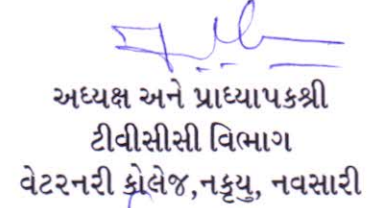 અધ્યક્ષ અને પ્રાધ્યાપકશ્રી
ટીવીસીસી વિભાગ
વેટરનરી કોલેજ,નકૃયુ, નવસારી